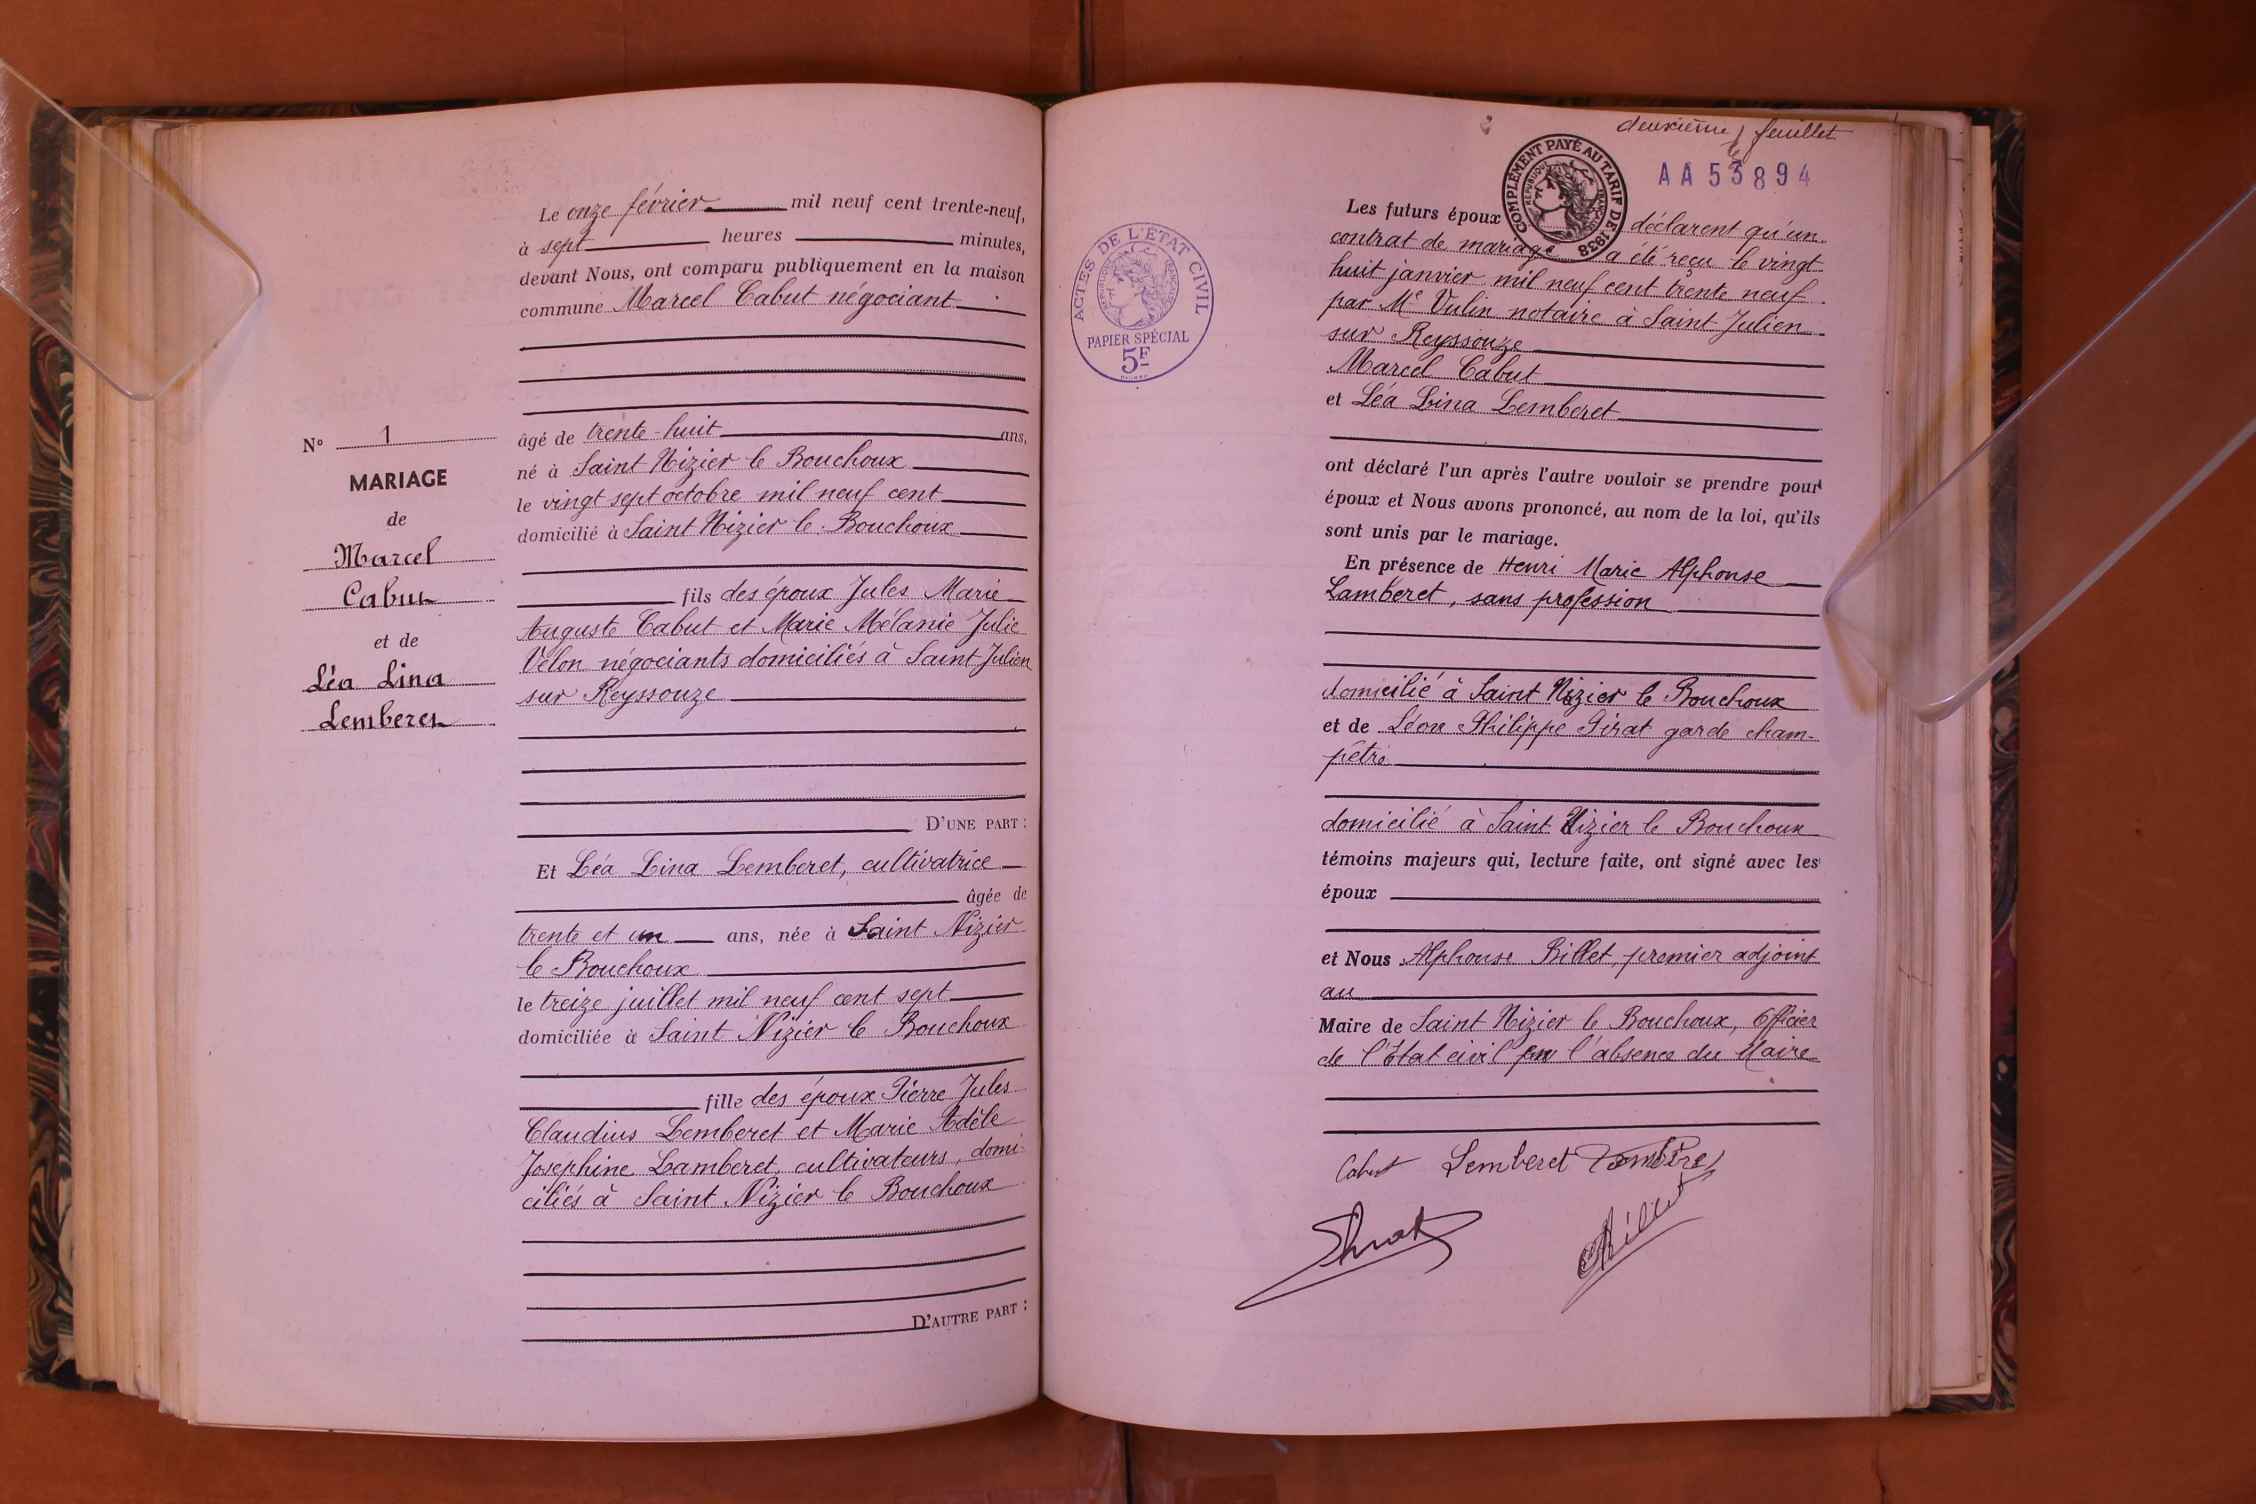 N° 1
MARIAGE
de
Marcel
Cabut
et de
Léa Lina
Lemberet
Le onze février mil neuf cent trente-neuf,
à sept heures minutes,
devant Nous, ont comparu publiquement en la maison
commune Marcel Cabut négociant
âgé de trente-huit ans,
né à Saint Nizier le Bouchoux
le vingt sept octobre mil neuf cent
domicilié à Saint Nizier le Bouchoux
fils des époux Jules Marie
Auguste Cabut et Marie Mélanie Julie
Velon négociants domiciliés à Saint Julien
sur Reyssouze
D'UNE PART :
Et Léa Lina Lemberet, cultivatrice
âgée de
trente et un ans, née à Saint Nizier
le Bouchoux
le treize juillet mil neuf cent sept
domiciliée à Saint Nizier le Bouchoux
fille des époux Pierre Jules
Claudius Lemberet et Marie Adèle
Joséphine Lamberet, cultivateurs, domi-
ciliés à Saint Nizier le Bouchoux
D'AUTRE PART :
deuxième feuillet
AA53894
COMPLÉMENT PAYÉ AU TARIF DE 1938
RÉPUBLIQUE FRANÇAISE
ACTES DE L'ÉTAT CIVIL
RÉPUBLIQUE FRANÇAISE
PAPIER SPÉCIAL
5F
Les futurs époux déclarent qu'un
contrat de mariage a été reçu le vingt
huit janvier mil neuf cent trente neuf
par Me Vulin notaire à Saint Julien
sur Reyssouze
Marcel Cabut
et Léa Lina Lemberet
ont déclaré l'un après l'autre vouloir se prendre pour
époux et Nous avons prononcé, au nom de la loi, qu'ils
sont unis par le mariage.
En présence de Henri Marie Alphonse
Lamberet, sans profession
domicilié à Saint Nizier le Bouchoux
et de Léon Philippe Pirat garde cham-
pêtre
domicilié à Saint Nizier le Bouchoux
témoins majeurs qui, lecture faite, ont signé avec les
époux
et Nous Alphonse Billet, premier adjoint
au
Maire de Saint Nizier le Bouchoux, Officier
de l'Etat civil en l'absence du Maire
Cabut Lemberet